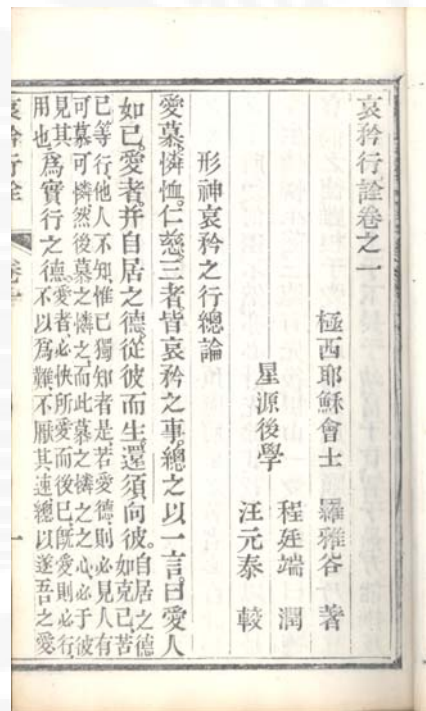 哀矜行詮卷之一
極西耶穌會士　羅雅谷　著
程廷端　潤
星源後學
汪元泰　較
形神哀矜之行總論
愛慕。憐恤。仁慈。三者皆哀矜之事。總之以一言。曰愛人
如己。愛者。并自居之德。從彼而生。還須向彼。自居之德如克己苦
已等行。他人不知。惟已獨知者是。若愛德。則必見人有
可慕可憐。然後慕之憐之。而此慕之憐之之心。必于彼
見其
用也。爲實行之德。愛者必快所愛而後已。旣愛則必行
不以爲難。不厭其速。總以遂吾之愛
哀矜行詮
卷一
一